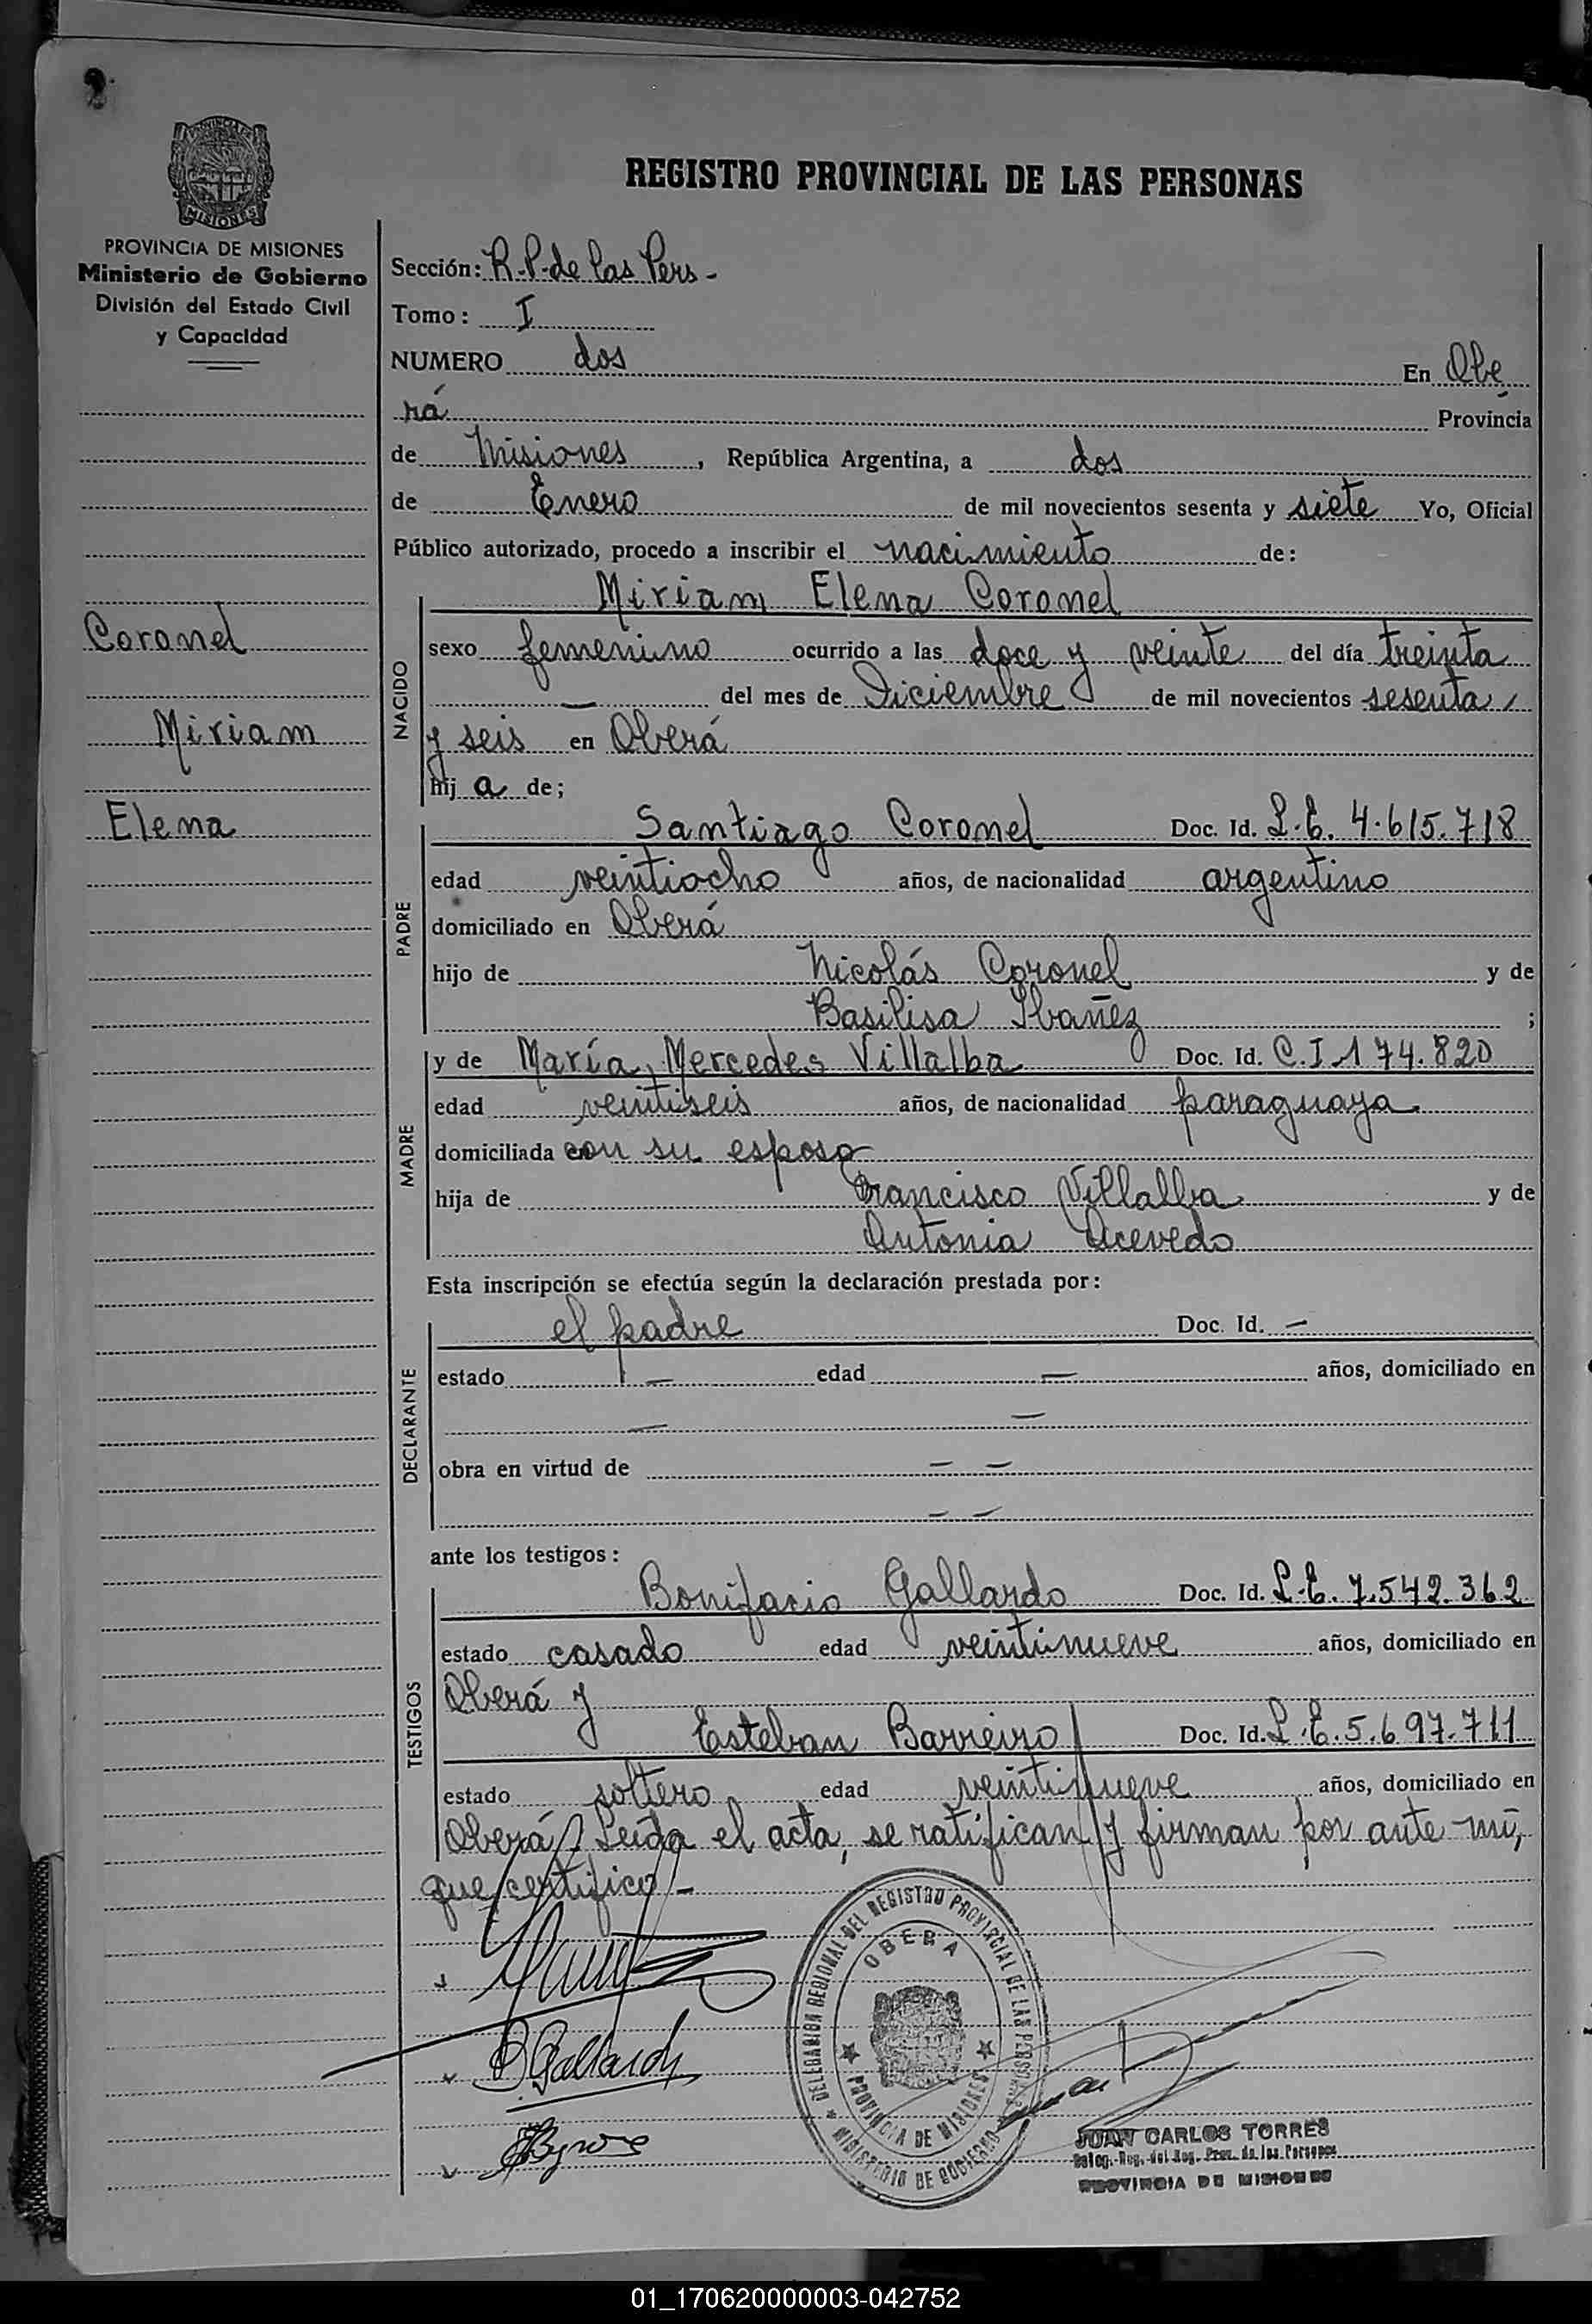 2.
MISIONES
PROVINCIA DE MISIONES
Ministerio de Gobierno
División del Estado Civil
y Capacidad
Coronel
Miriam
Elena
REGISTRO PROVINCIAL DE LAS PERSONAS
Sección: R.P. de las Pers-
Tomo: I
NUMERO dos En Obe
rá Provincia
de Misiones, República Argentina, a dos
de Enero de mil novecientos sesenta y siete Yo, Oficial
Público autorizado, procedo a inscribir el nacimiento de:
NACIDO
Miriam Elena Coronel
sexo femenino ocurrido a las doce y veinte del día treinta
— del mes de Diciembre de mil novecientos sesenta
y seis en Oberá
hij a de;
PADRE
Santiago Coronel Doc. Id. L.E. 4.615.718
edad veintiocho años, de nacionalidad argentino
domiciliado en Oberá
hijo de Nicolás Coronel y de
Basilisa Ibañez ;
MADRE
y de María Mercedes Villalba Doc. Id. C.I 174.820
edad veintiseis años, de nacionalidad paraguaya
domiciliada con su esposo
hija de Francisco Villalba y de
Antonia Acevedo
Esta inscripción se efectúa según la declaración prestada por:
DECLARANTE
el padre Doc. Id. —
estado — edad — años, domiciliado en
— —
obra en virtud de — —
— —
ante los testigos:
TESTIGOS
Bonifacio Gallardo Doc. Id. L.E. 7.542.362
estado casado edad veintinueve años, domiciliado en
Oberá y
Esteban Barreiro Doc. Id. L.E. 5.697.711
estado soltero edad veintinueve años, domiciliado en
Oberá. Leída el acta, se ratifican y firman por ante mí,
que certifico -
B Gallardo
DELEGACION REGIONAL DEL REGISTRO PROVINCIAL DE LAS PERSONAS
OBERA
PROVINCIA DE MISIONES
MINISTERIO DE GOBIERNO
JUAN CARLOS TORRES
Deleg. Reg. del Reg. Prov. de las Personas
PROVINCIA DE MISIONES
01_170620000003-042752